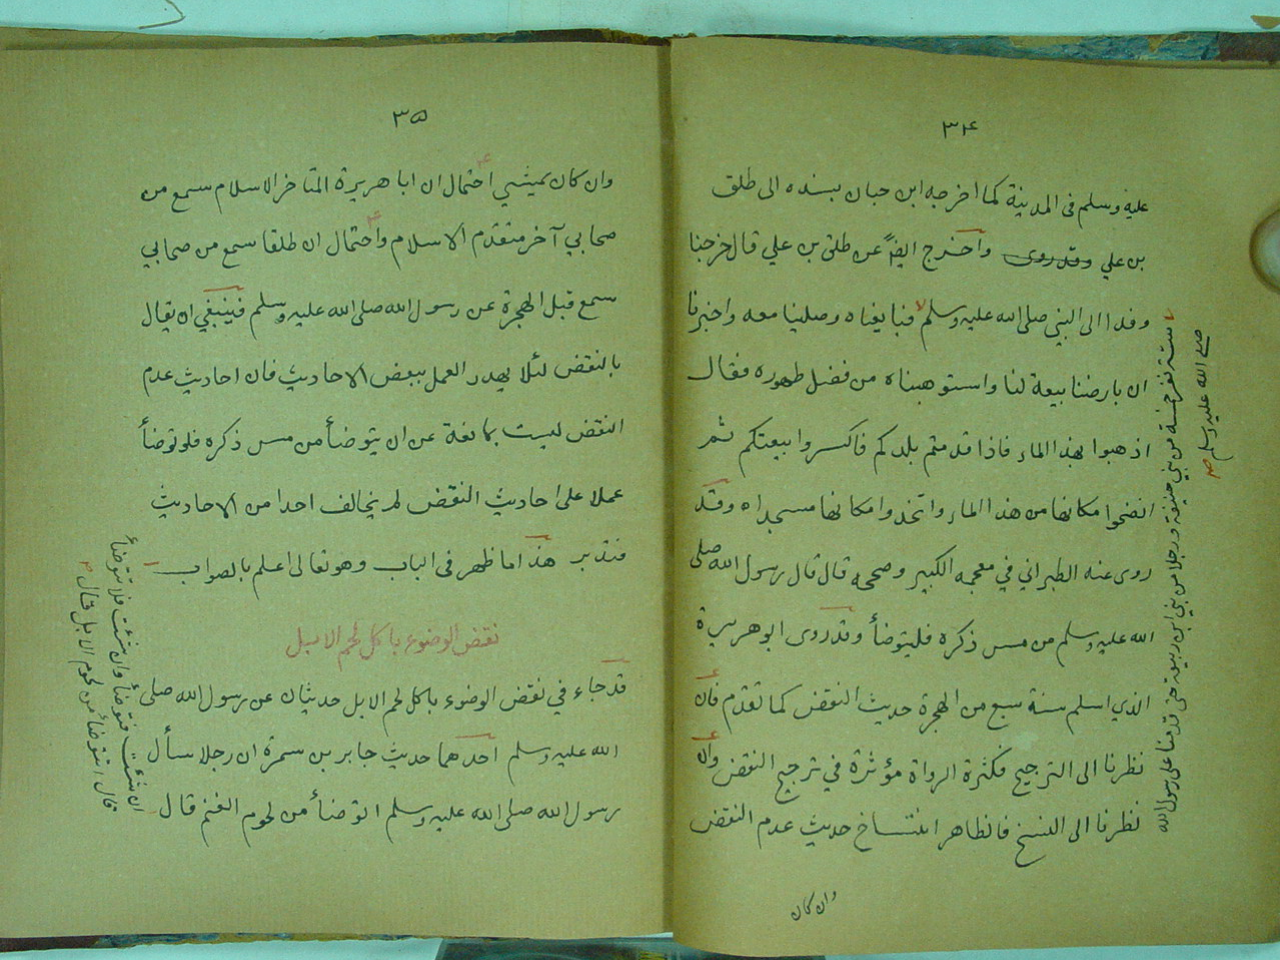 ٣٤
عليه وسلم فى المدينة كما اخرجه ابن حبان بسنده الى طلق
بن علي وقد روى واخرج ايضاً عن طلق بن علي قال خرجنا
وفدا الى النبي صلى الله عليه وسلم فبايعناه وصلينا معه واخبرنا
ان بارضنا بيعة لنا واستوهبناه من فضل طهوره فقال
اذهبوا بهذا الماء فاذا قدمتم بلدكم فاكسروا بيعتكم ثم
انضحوا مكانها من هذا الماء واتخذوا مكانها مسجدا اه وقد
روى عنه الطبراني في معجمه الكبير وصححه قال قال رسول الله صلى
الله عليه وسلم من مس ذكره فليتوضأ وقد روى ابو هريرة
الذي اسلم سنة سبع من الهجرة حديث النقض كما تقدم فان
نظرنا الى الترجيح فكثرة الرواة مؤثرة في ترجيح النقض وان
نظرنا الى النسخ فالظاهر انتساخ حديث عدم النقض
وان كان
ستة نفر خمسة من بني حنيفة ورجلا من بني ربيعة حتى قدمنا على رسول الله
صلى الله عليه وسلم صح
٣٥
وان كان يمشي احتمال ان ابا هريرة المتاخر الاسلام سمع من
صحابي آخر متقدم الاسلام واحتمال ان طلقا سمع من صحابي
سمع قبل الهجرة عن رسول الله صلى الله عليه وسلم فينبغي ان يقال
بالنقض لئلا يهدر العمل ببعض الاحاديث فان احاديث عدم
النقض ليست بمانعة عن ان يتوضأ من مس ذكره فلو توضأ
عملا على احاديث النقض لم يخالف احدا من الاحاديث
فتدبر هذا ما ظهر فى الباب وهو تعالى اعلم بالصواب
نقض الوضوء باكل لحم الابل
قد جاء في نقض الوضوء باكل لحم الابل حديثان عن رسول الله صلى
الله عليه وسلم احدهما حديث جابر بن سمرة ان رجلا سأل
رسول الله صلى الله عليه وسلم انتوضأ من لحوم الغنم قال
ان شئت فتوضأ وان شئت فلا تتوضأ
قال انتوضأ من لحوم الابل قال